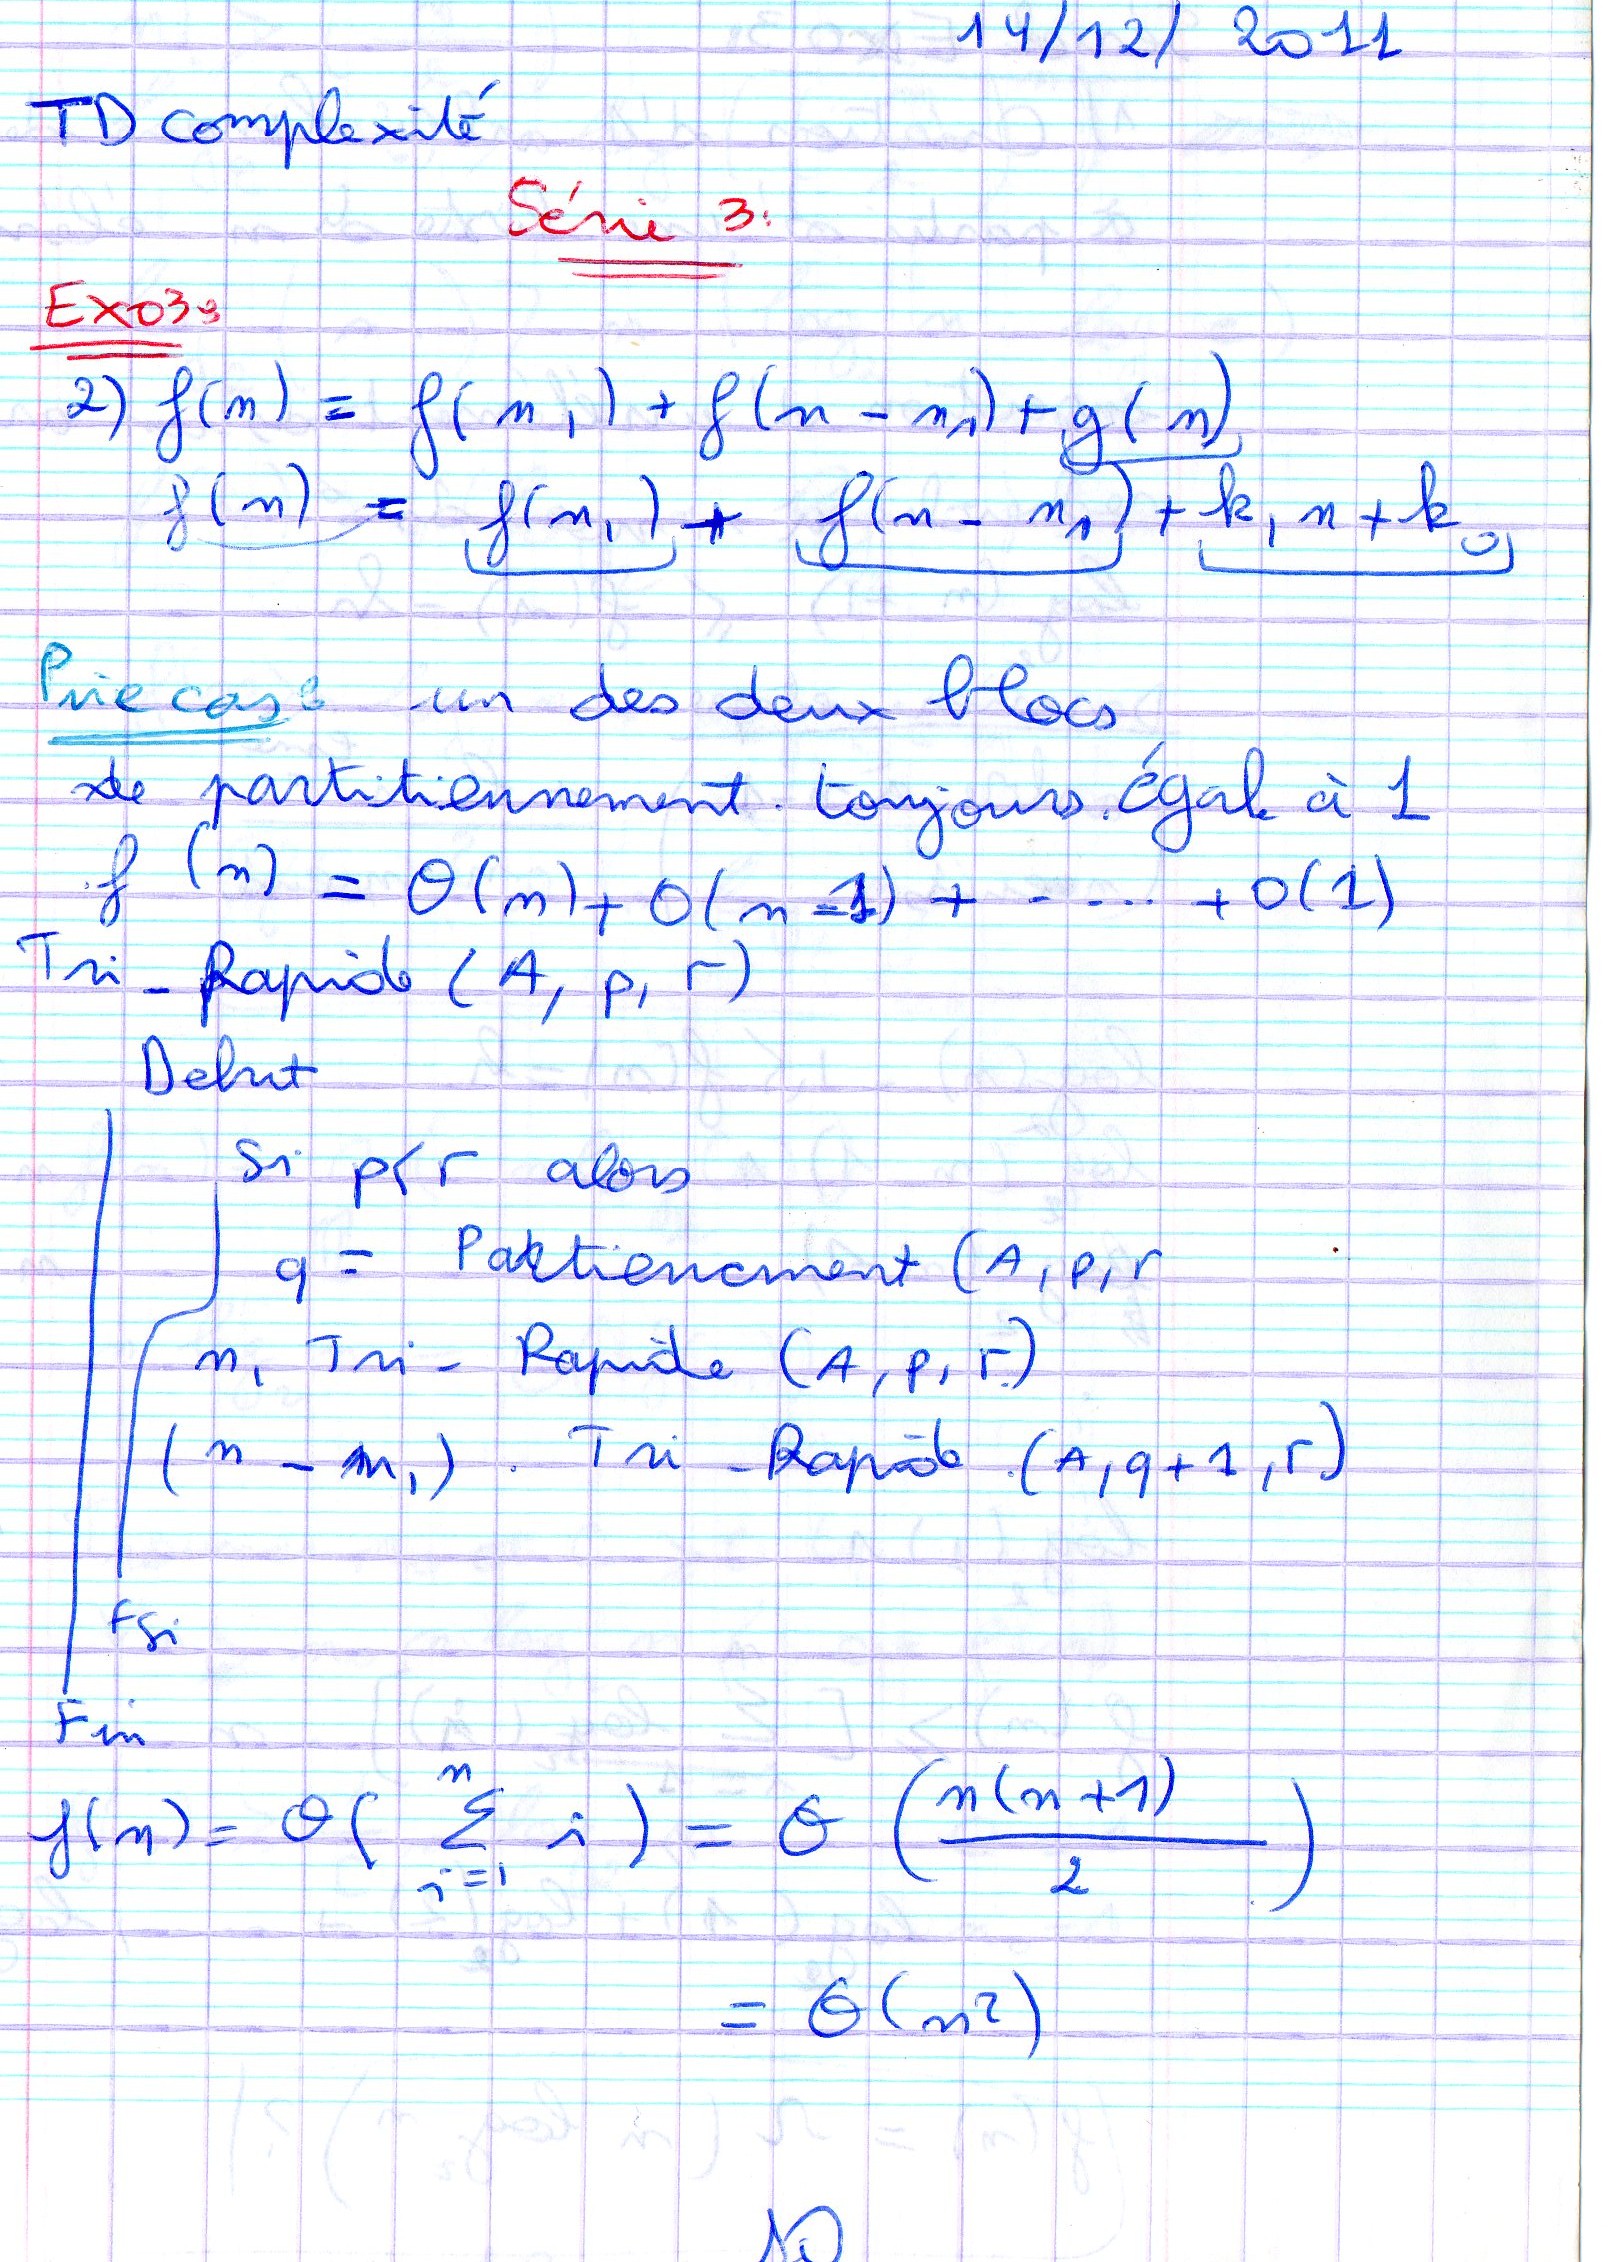 14/12/2011
TD complexité
Série 3:
Exo3:
2) f(n) = f(n₁) + f(n - n₁) + g(n)
f(n) = f(n₁) + f(n - n₁) + k₁ n + k₀
Pire cas: un des deux blocs
de partitiennement toujours égal à 1
f(n) = θ(n) + O(n-1) + ..... + O(1)
Tri_Rapide (A, p, r)
Debut
Si p<r alors
q = Partienement (A, p, r
n₁ Tri- Rapide (A, p, r)
(n - n₁) . Tri _Rapide (A, q+1, r)
FSi
Fin
f(n) = θ( ∑ⁿᵢ₌₁ i ) = θ ( n(n+1) / 2 )
= θ(n²)